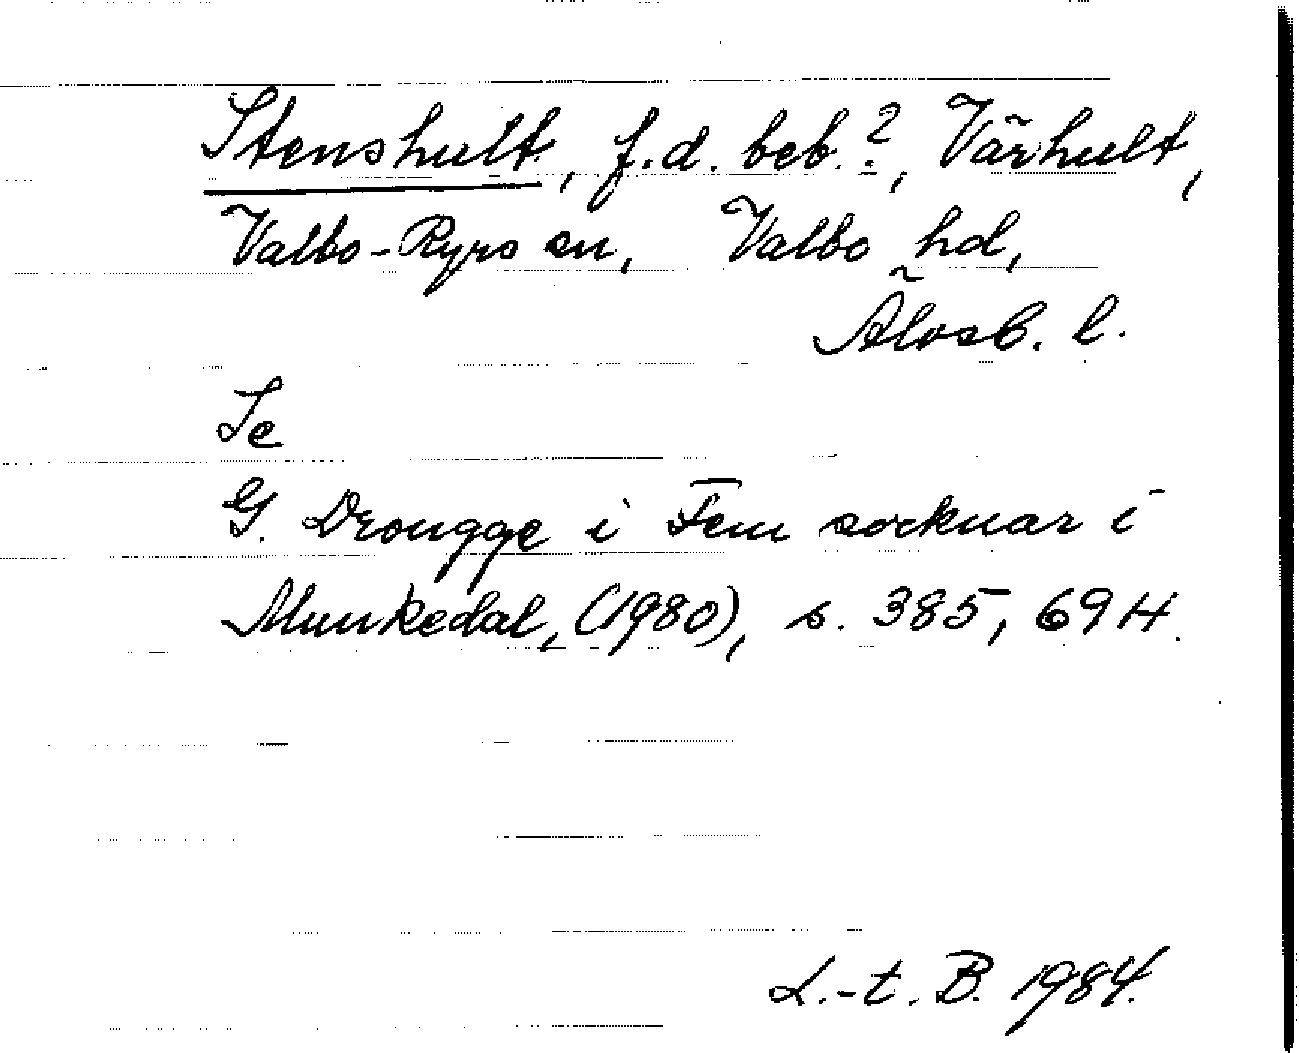 Stenshult, f.d. beb.?, Värhult,
Valbo-Ryrs sn, Valbo hd,
Älvsb. l.
Se
G. Drougge i Fem socknar i
Munkedal, (1980), s. 385, 694.
L.-t. B. 1984.